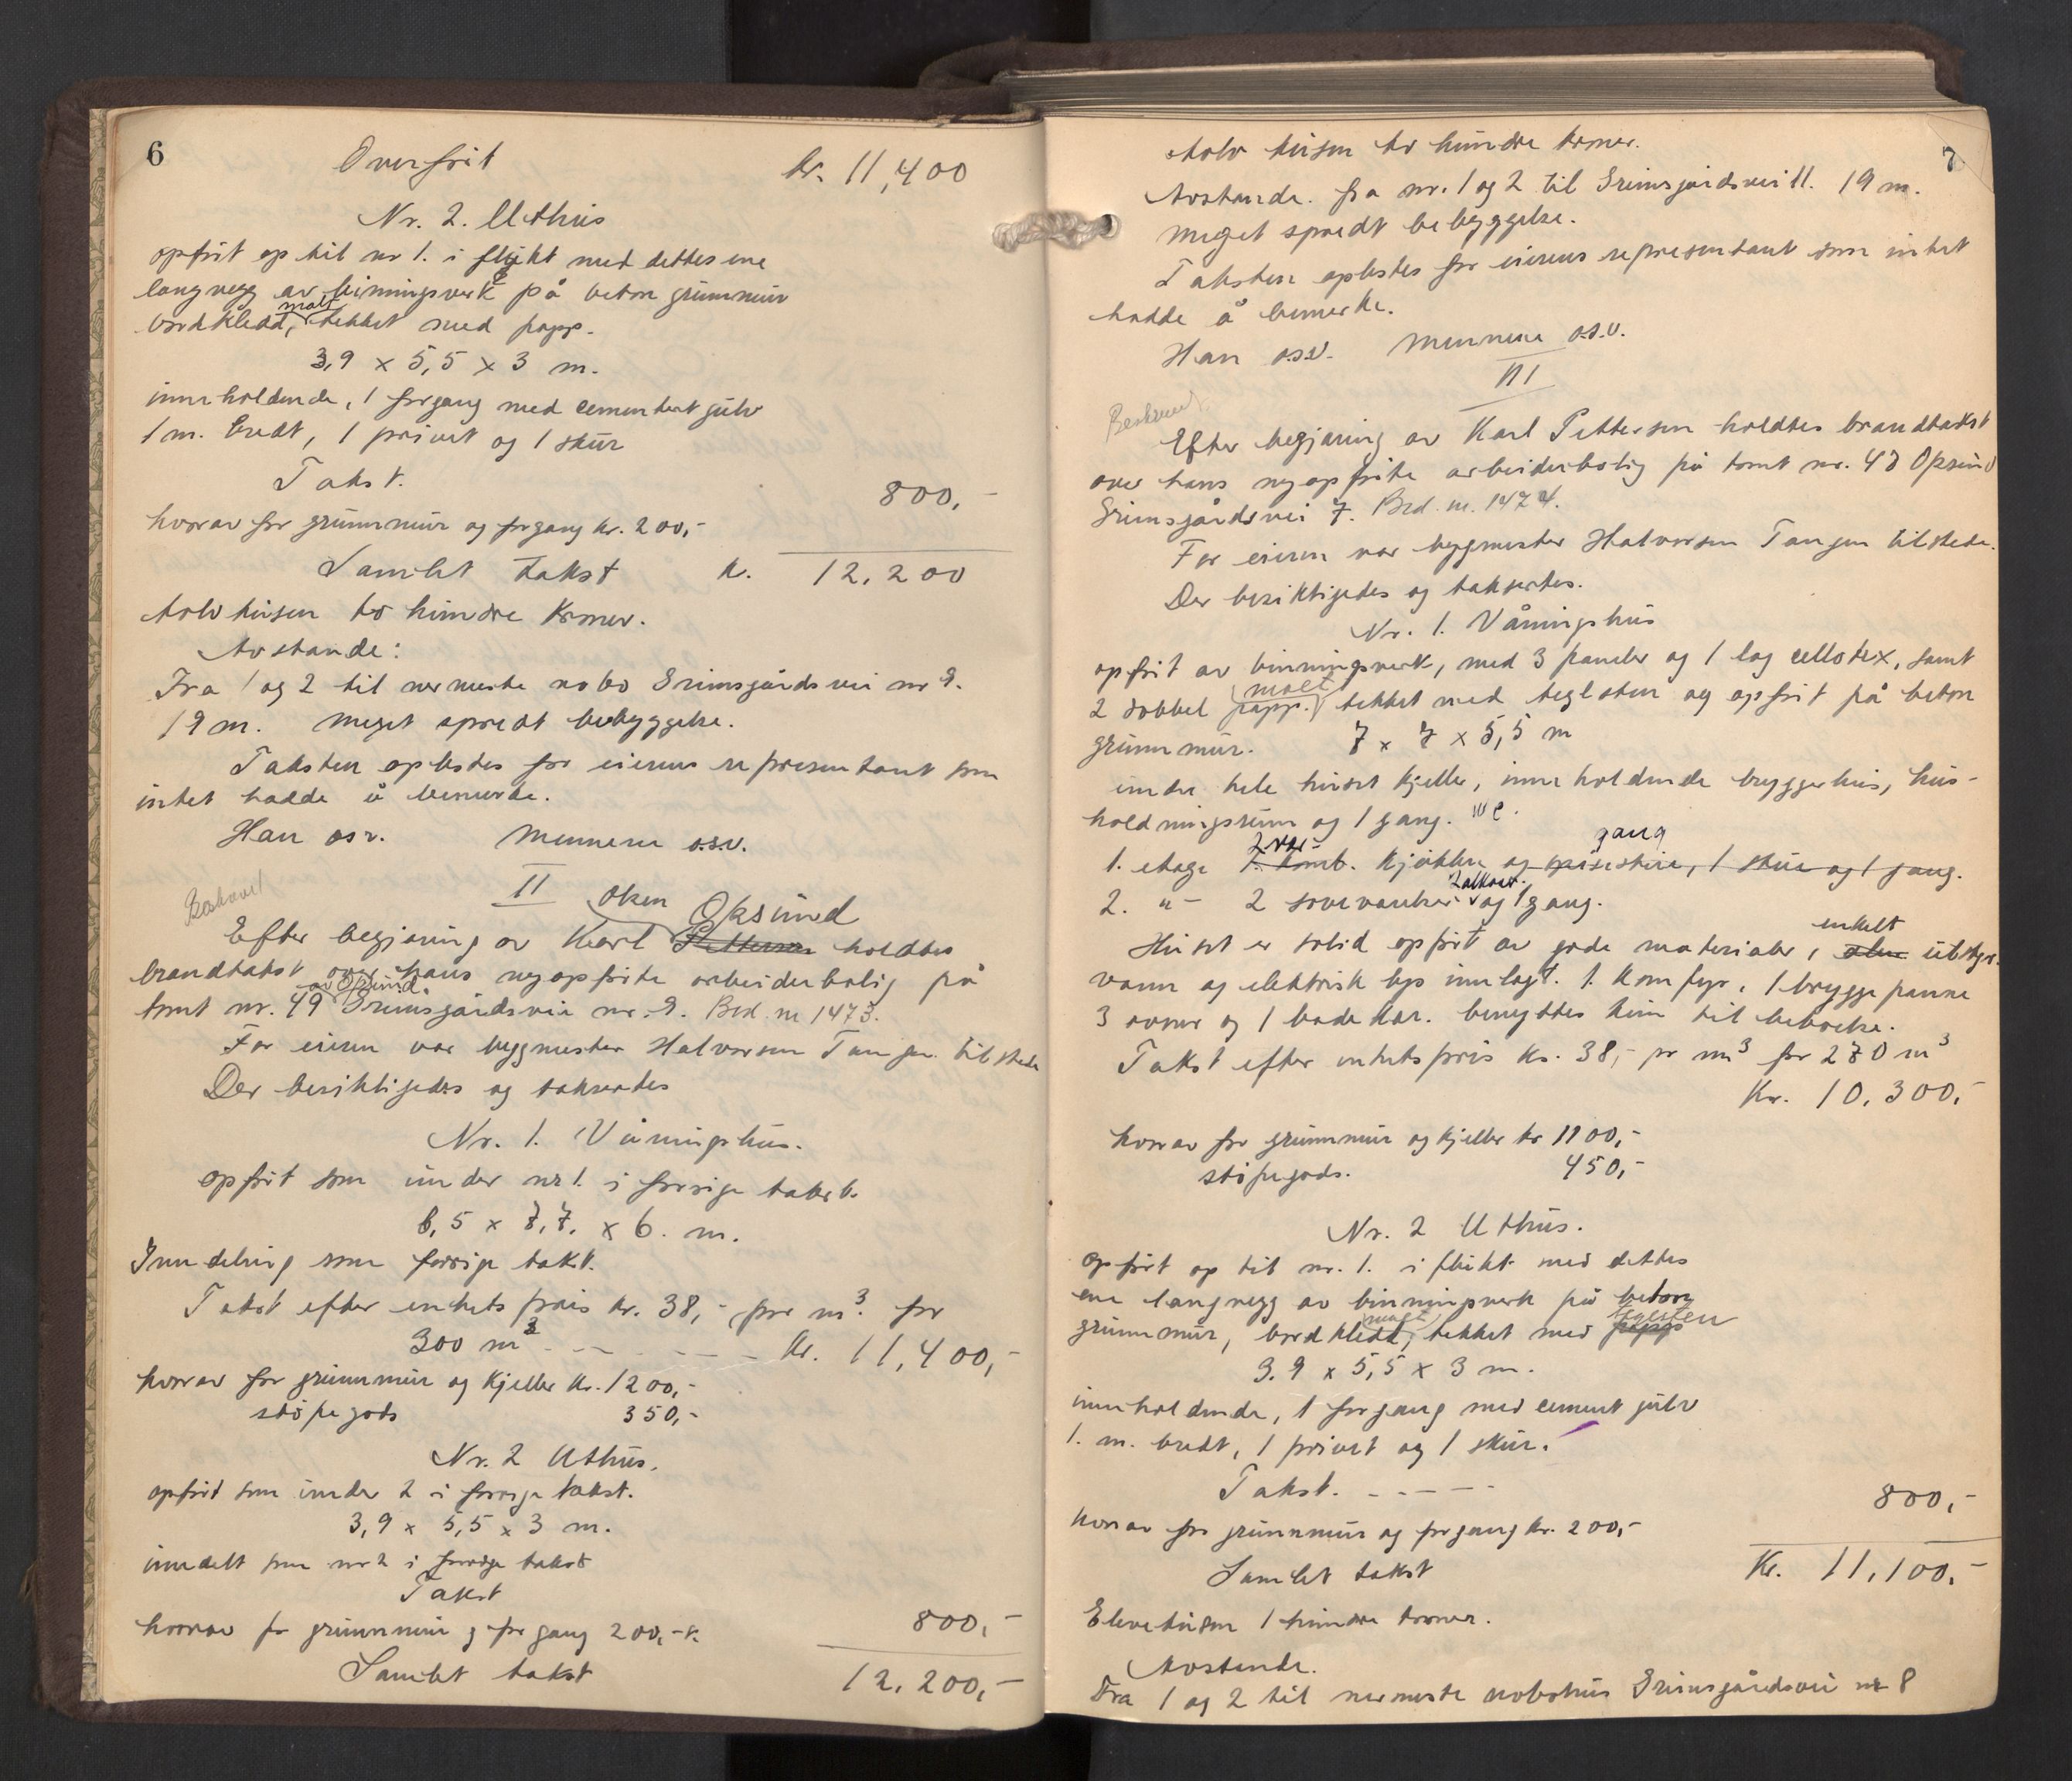 6
Overført kr. 11,400
Nr. 2. Uthus
opført op til nr 1. i flukt med dettes ene
langvegg av binningsverk på beton grunnmur
bordkledd, malt tekket med papp.
3,9 x 5,5 x 3 m.
innholdende, 1 forgang med cementert gulv
1 m. bredt, 1 privet og 1 skur
Takst. 800,-
hvorav for grunnmur og forgang kr. 200,-
Samlet takst kr. 12,200
tolv tusen to hundre kroner.
Avstande:
Fra 1 og 2 til nermeste nabo Grimsgårdsvei nr 9.
19 m. meget spredt bebyggelse.
Taksten oplestes for eierens representant som
intet hadde å bemerke.
Han osv. Mennene o.s.v.
II
Beskrevet
Efter begjæring av Karl Olsen Oksund Pettersen holdtes
brandtakst over hans nyopførte arbeiderbolig på
tomt nr. 49 av Opsund. Grimsgårdsvei nr. 9. Brd. nr 1473.
For eieren var byggmester Halvorsen Tangen tilstede
Der besiktigedes og taksertes
Nr. 1. Våningshus.
opført som under nr 1. i forrige takst.
6,5 x 7,7. x 6. m.
Inndeling som forrige takst.
Takst efter enhets pris kr. 38,- pr m³. for
300 m³ - - - - - - kr. 11,400,-
hvorav for grunnmur og kjeller kr. 1200,-
støpegods 350,-
Nr. 2 Uthus.
opført som under 2 i forrige takst.
3,9 x 5,5 x 3 m.
inndelt som nr 2 i forrige takst
Takst
hvorav for grunnmur og forgang 200,- kr. 800,-
Samlet takst 12,200,-
7
tolv tusen to hundre kroner.
Avstande. fra nr. 1 og 2 til Grimsgårdsvei 11. 19 m.
meget spredt bebyggelse.
Taksten oplestes for eierens representant som intet
hadde å bemerke.
Han o.s.v. Mennene o.s.v.
III
Beskrevet
Efter begjæring av Karl Pettersen holdtes brandtakst
over hans nyopførte arbeiderbolig på tomt nr. 48 Opsund
Grimsgårdsvei 7. Brd. nr. 1474.
For eieren var byggmester Halvorsen Tangen tilstede.
Der besiktigedes og taksertes.
Nr. 1. Våningshus
opført av binningsverk, med 3 paneler og 1 lag cellotex, samt
2 dobbel papp. malt tekket med teglsten og opført på beton
grunnmur. 7 x 7 x 5,5 m
under hele huset kjeller, innholdende bryggerhus, hus-
holdningsrum og 1 gang.
1. etage 2 vær. 1. komb. kjøkken og gang spisestue, 1 stue og 1 gang.
2. "- 2 soveværelser 2 alkover og 1 gang.
Huset er solid opført av gode materialer, enkelt utstyr.
vann og elektrisk lys innlagt. 1. komfyr, 1 bryggepanne
3 ovner og 1 badekar. benyttes kun til beboelse.
Takst efter enhetspris kr. 38,- pr m³ for 270 m³
Kr. 10.300,-
hvorav for grunnmur og kjeller kr 1100,-
støpegods. 450,-
Nr. 2 Uthus.
opført op til nr. 1. i flukt med dettes
ene langvegg av binningverk på beton
grunnmur, bordkledd, malt tekket med papp teglsten
3.9 x 5,5 x 3 m.
innholdende, 1 forgang med cement gulv
1. m. bredt, 1 privet og 1 skur.
Takst. - - - - - 800,-
hvorav for grunnmur og forgang kr. 200,-
Samlet takst Kr. 11,100,-
Elevetusen 1 hundre kroner.
Avstande.
Fra 1 og 2 til nermeste nabohus Grimsgårdsvei nr 8